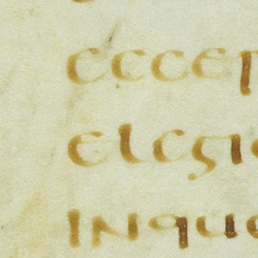 eccep
elegio
inque